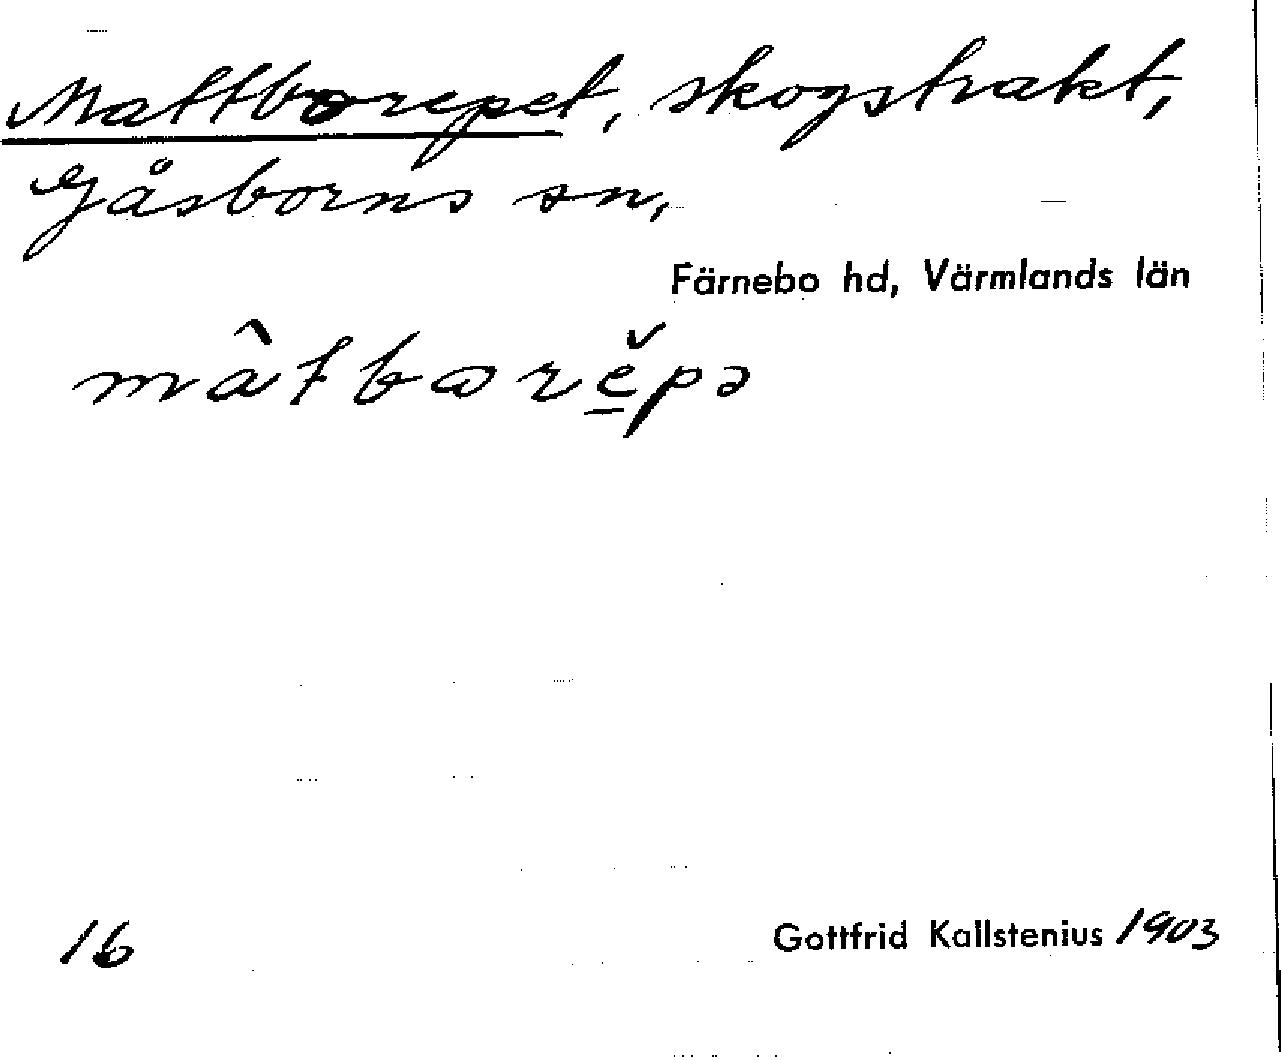 Mattborepet, skogstrakt,
Gåsborns sn,
Färnebo hd, Värmlands län
mâtbωrĕ̲pə
16
Gottfrid Kallstenius 1903